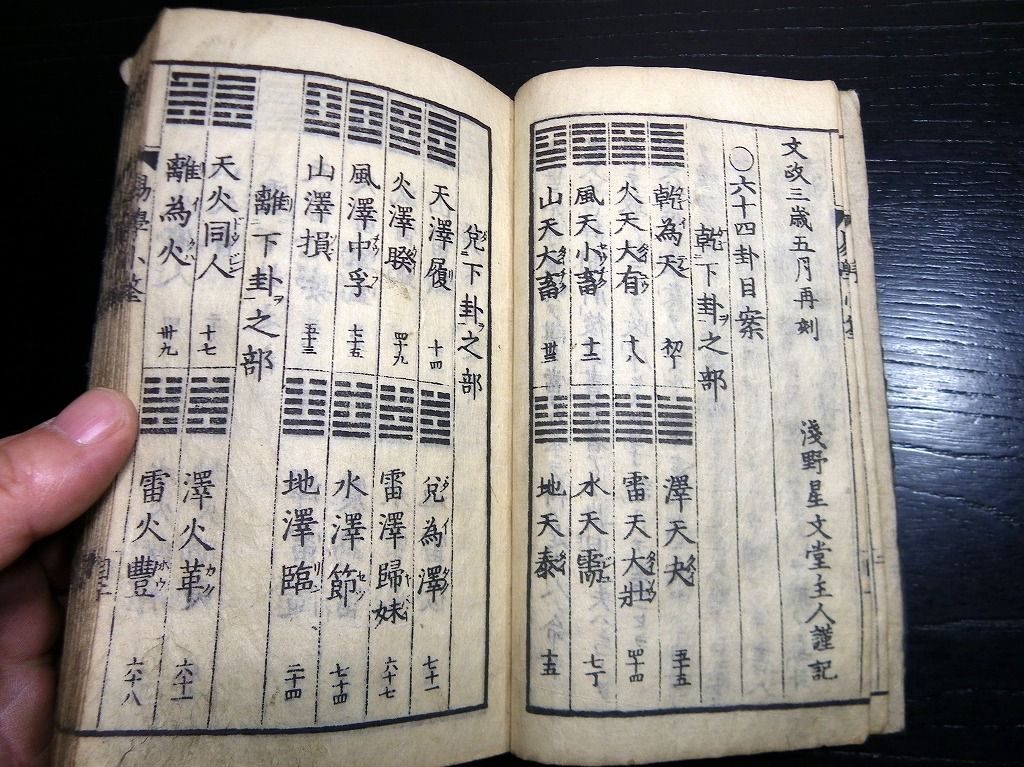 文政三歳五月再刻
淺野星文堂主人謹記
○六十四卦目案
乾下卦之部
乾為天 初丁
澤天夬 五十五
火天大有 十八
雷天大壯 四十四
風天小畜 十二
水天需 七丁
山天大畜 卅三
地天泰 十五
兌下卦之部
天澤履 十四
兌為澤 七十一
火澤睽 四十九
雷澤歸妹 六十七
風澤中孚 七十五
水澤節 七十四
山澤損 五十三
地澤臨 二十四
離下卦之部
天火同人 十七
澤火革 六十一
離為火 卅九
雷火豐 六十八
易學小筌